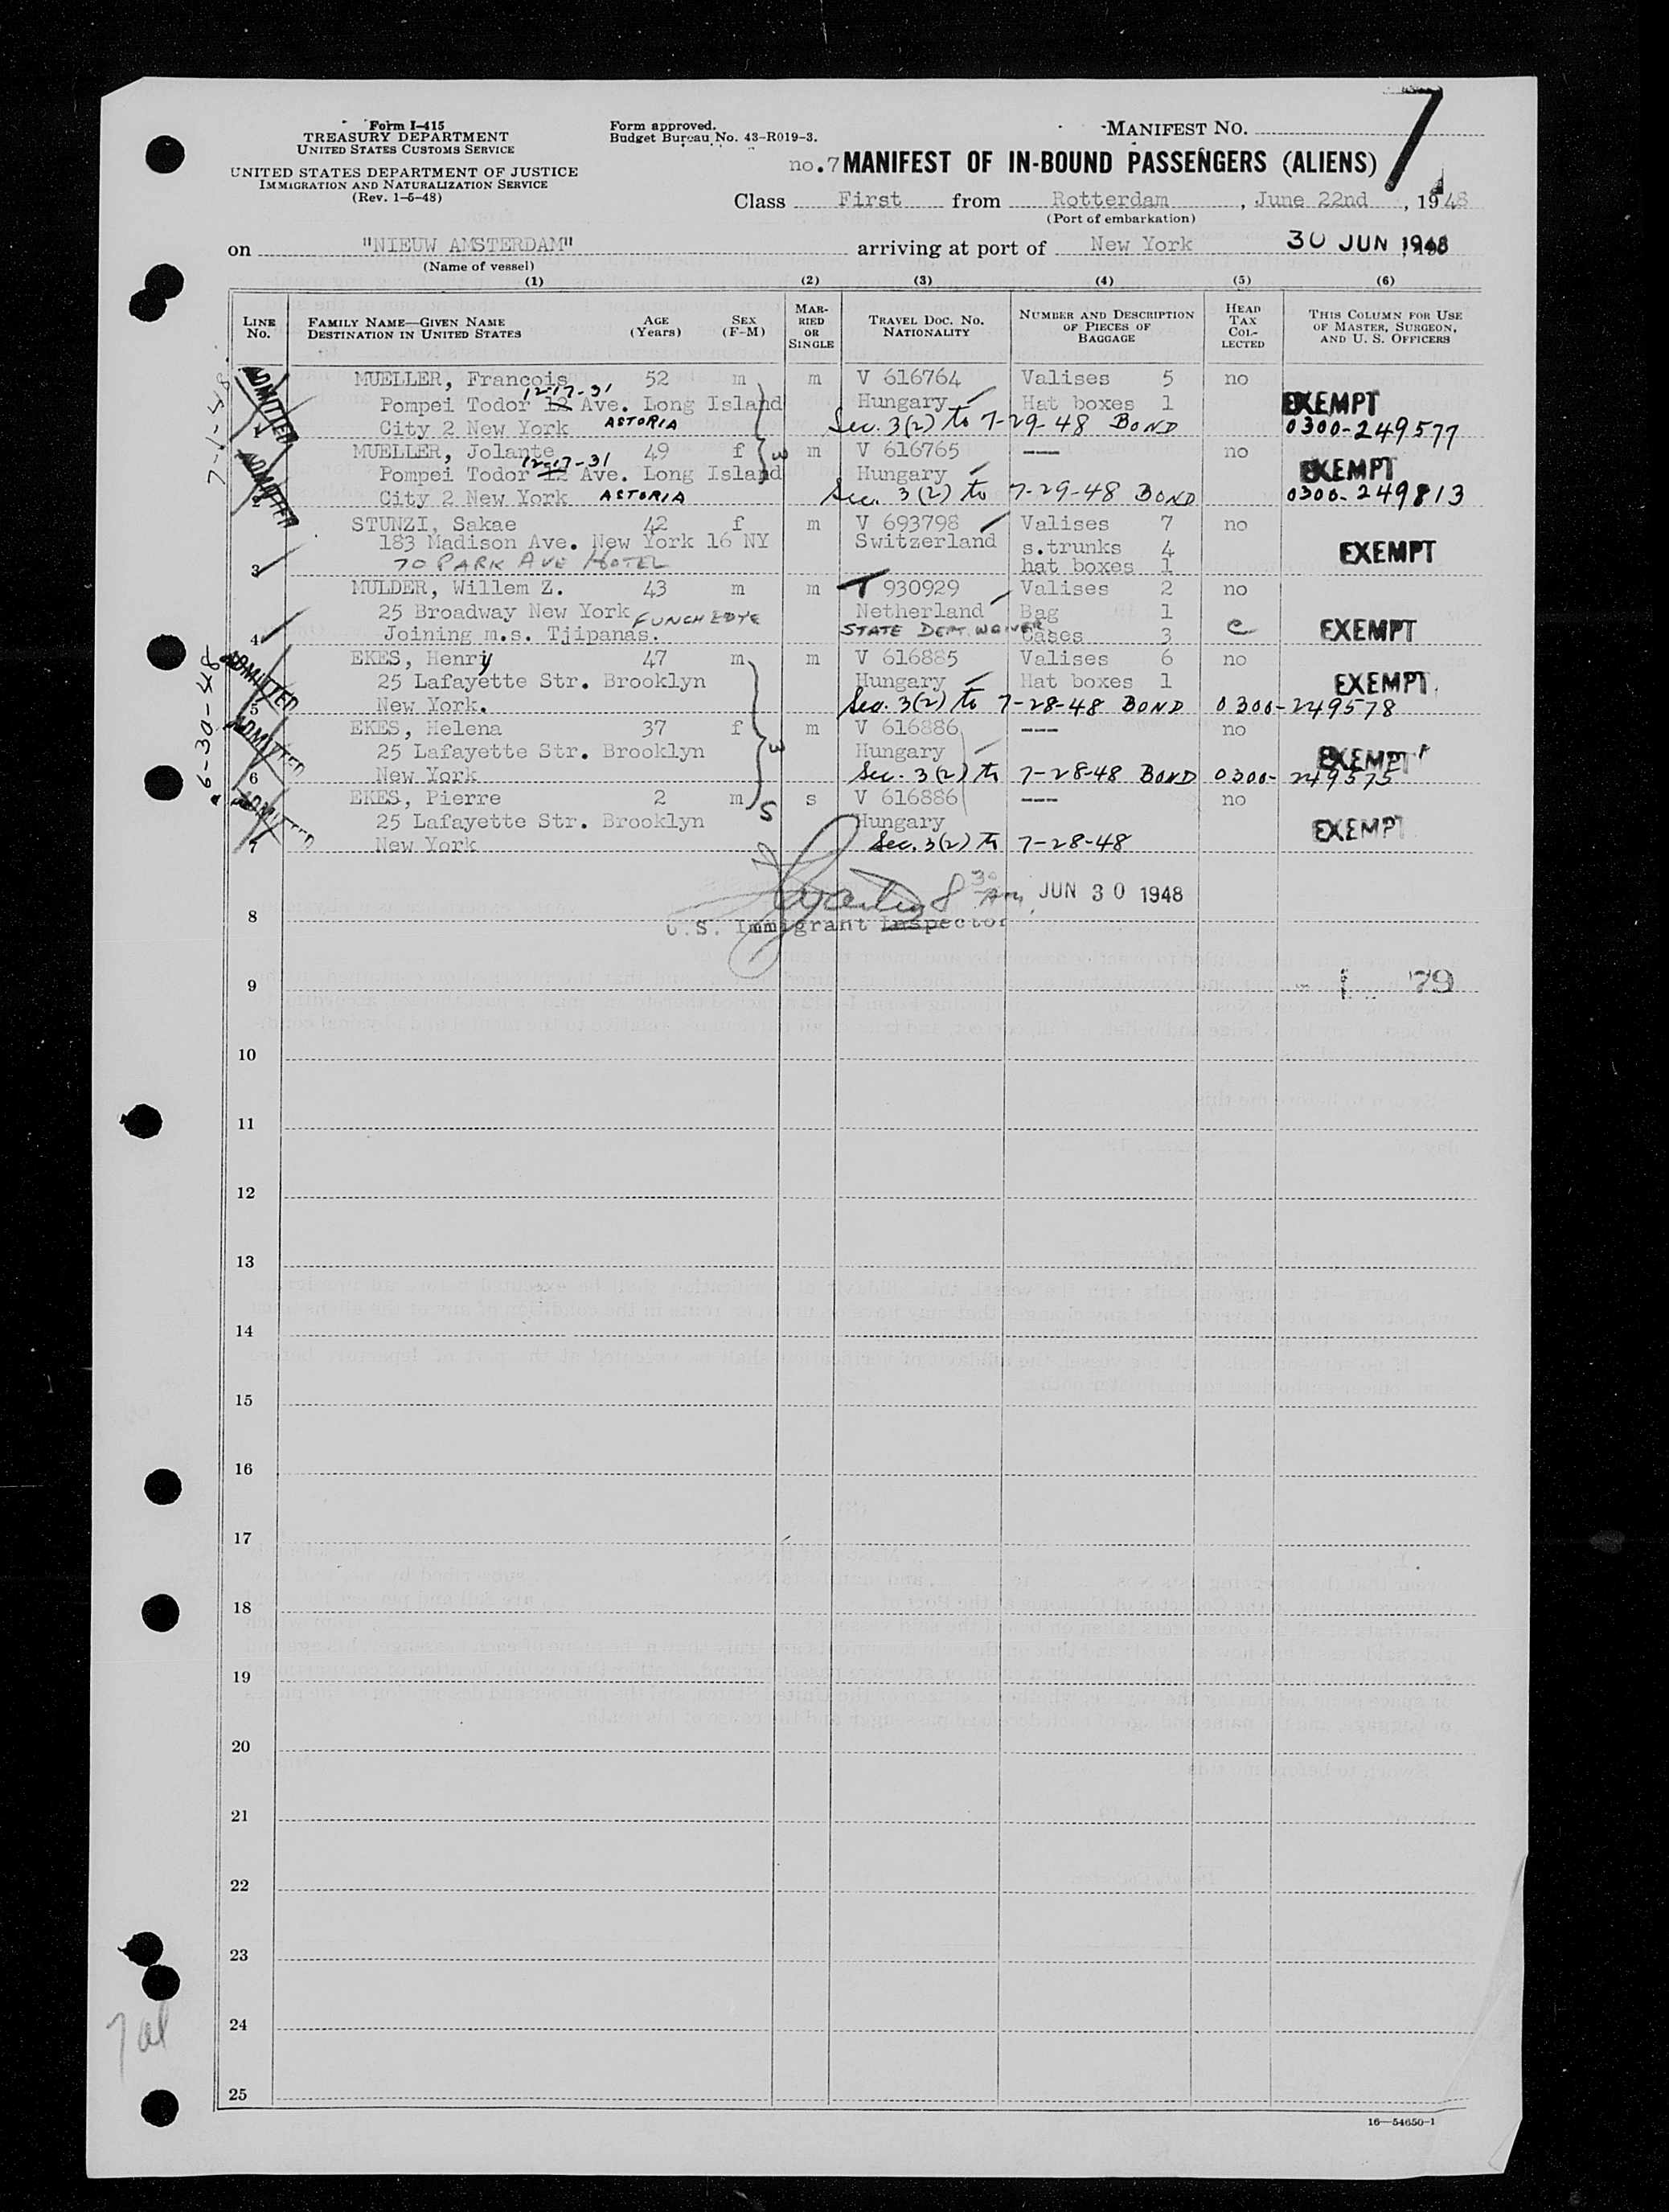 7
Form I-415
TREASURY DEPARTMENT
UNITED STATES CUSTOMS SERVICE
UNITED STATES DEPARTMENT OF JUSTICE
IMMIGRATION AND NATURALIZATION SERVICE
(Rev. 1-5-48)
Form approved.
Budget Bureau No. 43-R019-3.
MANIFEST NO.
no.7 MANIFEST OF IN-BOUND PASSENGERS (ALIENS)
Class First from Rotterdam, June 22nd, 1948
(Port of embarkation)
on "NIEUW AMSTERDAM" arriving at port of New York 30 JUN 1948
(Name of vessel)
(1) (2) (3) (4) (5) (6)
LINE No. FAMILY NAME—GIVEN NAME DESTINATION IN UNITED STATES AGE (Years) SEX (F-M) MARRIED OR SINGLE TRAVEL DOC. NO. NATIONALITY NUMBER AND DESCRIPTION OF PIECES OF BAGGAGE HEAD TAX COLLECTED THIS COLUMN FOR USE OF MASTER, SURGEON, AND U. S. OFFICERS
7-1-48
ADMITTED
1 MUELLER, Francois 52 m m V 616764 Valises 5 no
12-17-31
Pompei Todor 12 Ave. Long Island Hungary Hat boxes 1 EXEMPT
City 2 New York ASTORIA Sec. 3(2) to 7-29-48 BOND 0300-249577
ADMITTED
2 MUELLER, Jolante 49 f m V 616765 --- no
12-17-31
Pompei Todor 12 Ave. Long Island Hungary EXEMPT
City 2 New York ASTORIA Sec. 3(2) to 7-29-48 BOND 0300-249813
STUNZI, Sakae 42 f m V 693798 Valises 7 no
183 Madison Ave. New York 16 NY Switzerland s.trunks 4 EXEMPT
3 70 PARK AVE HOTEL hat boxes 1
MULDER, Willem Z. 43 m m T 930929 Valises 2 no
25 Broadway New York FUNCH EDYE Netherland Bag 1
4 Joining m.s. Tjipanas. STATE DEPT WAIVER Cases 3 e EXEMPT
6-30-48
ADMITTED
EKES, Henry 47 m m V 616885 Valises 6 no
25 Lafayette Str. Brooklyn Hungary Hat boxes 1 EXEMPT
5 New York. Sec. 3(2) to 7-28-48 BOND 0300-249578
ADMITTED
EKES, Helena 37 f m V 616886 --- no
25 Lafayette Str. Brooklyn Hungary EXEMPT
6 New York Sec. 3(2) to 7-28-48 BOND 0300-249575
ADMITTED
EKES, Pierre 2 m S s V 616886 --- no
25 Lafayette Str. Brooklyn Hungary EXEMPT
7 New York Sec. 3(2) to 7-28-48
8 30 AM JUN 30 1948
8 U.S. Immigrant Inspector
9 79
10
11
12
13
14
15
16
17
18
19
20
21
22
23
24
25
16—54650-1